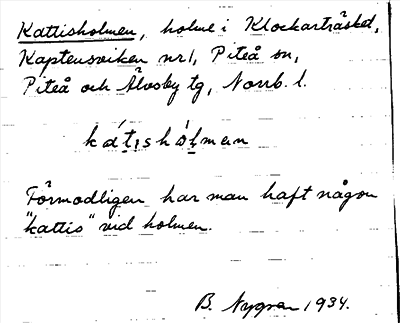 Kattisholmen, holme i Klockarträsket,
Kaptensviken nr 1, Piteå sn,
Piteå och Älvsby tg, Norrb. l.
kátıshólmen
Förmodligen har man haft någon
"kattis" vid holmen.
B. Nygren 1934.